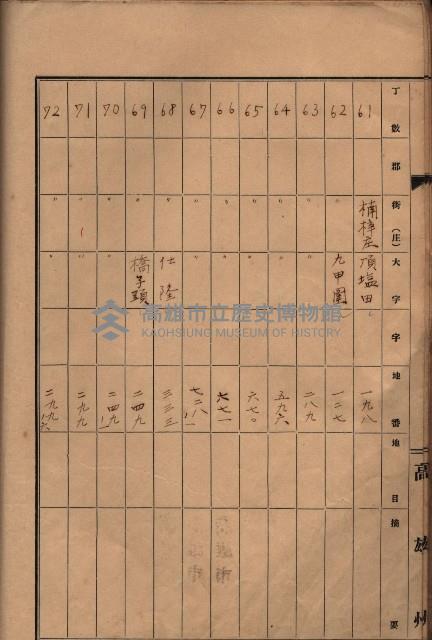 丁數 郡 街(庄) 大字 字 地番 地目 摘要
61 楠梓庄 頂塩田 一九八
62 〃 九甲圍 一二七
63 〃 〃 二八九
64 〃 〃 五九六
65 〃 〃 六七〇
66 〃 〃 六七一
67 〃 〃 七二八ノ一
68 〃 仕隆 三三三
69 〃 橋子頭 二四九
70 〃 〃 二四九ノ一
71 〃 〃 二九九
72 〃 〃 二九九ノ六
高雄州
高雄市立歷史博物館
KAOHSIUNG MUSEUM OF HISTORY